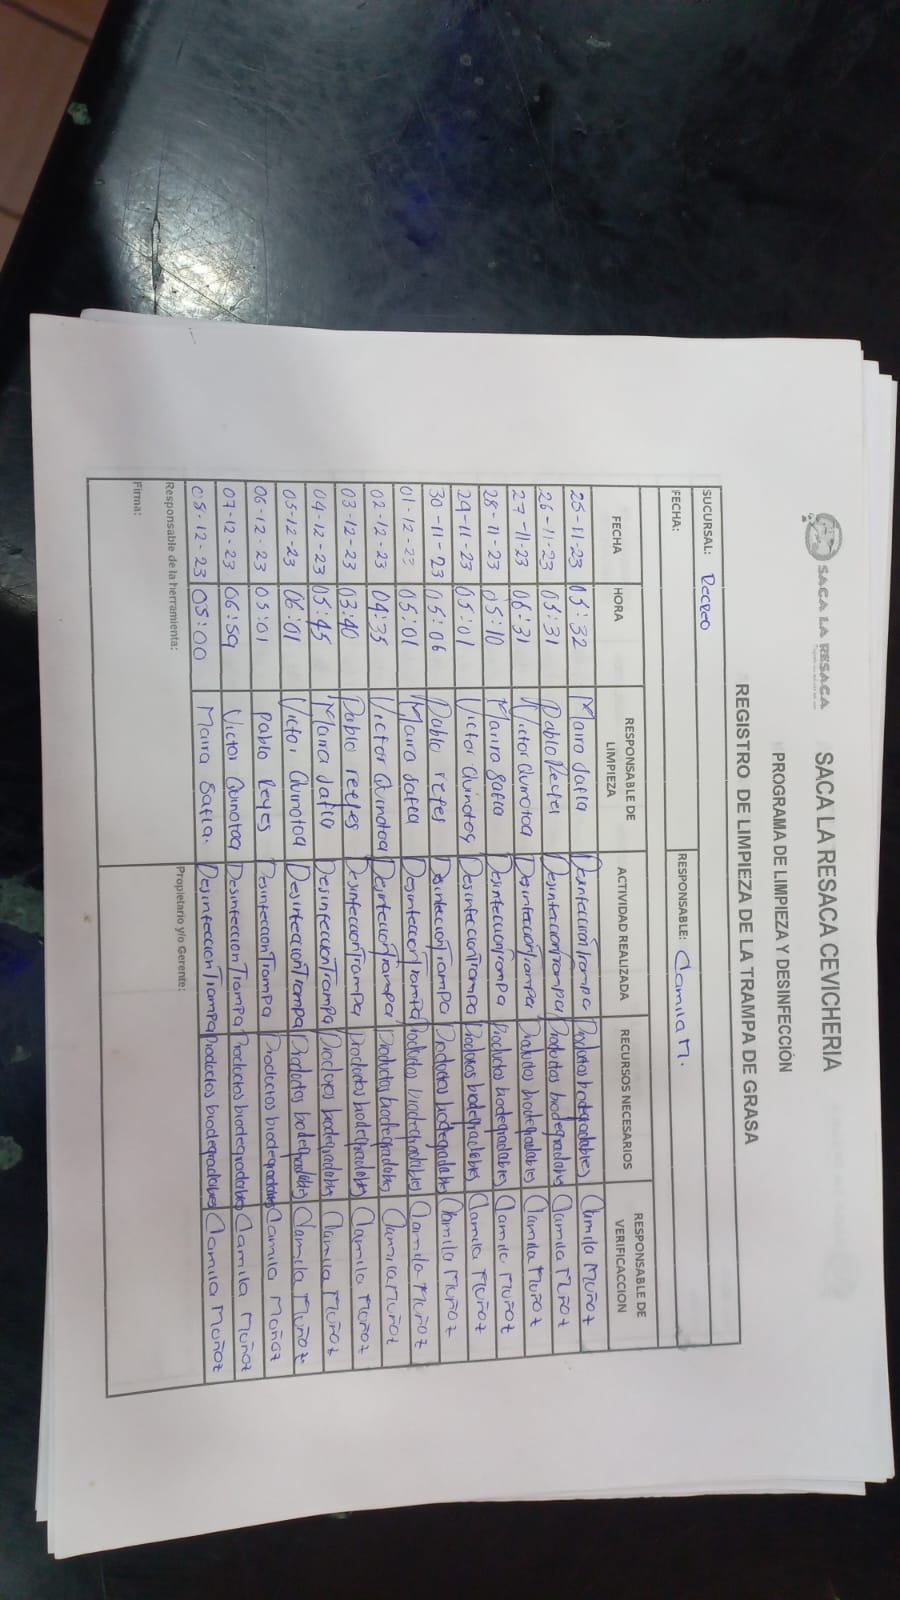 SACA LA RESACA SACA LA RESACA CEVICHERIA
PROGRAMA DE LIMPIEZA Y DESINFECCIÓN
REGISTRO DE LIMPIEZA DE LA TRAMPA DE GRASA
SUCURSAL: Recreo
FECHA: RESPONSABLE: Camila M.
FECHA HORA RESPONSABLE DE LIMPIEZA ACTIVIDAD REALIZADA RECURSOS NECESARIOS RESPONSABLE DE VERIFICACCION
25-11-23 05:32 Maira Safla Desinfeccion Trampa Productos biodegradables Camila Muñoz
26-11-23 05:31 Pablo Reyes Desinfeccion Trampa Productos biodegradables Camila Muñoz
27-11-23 06:31 Victor Quinotoa Desinfeccion Trampa Productos biodegradables Camila Muñoz
28-11-23 05:10 Maira Safla Desinfeccion Trampa Productos biodegradables Camila Muñoz
29-11-23 05:01 Victor Quinotoa Desinfeccion Trampa Productos biodegradables Camila Muñoz
30-11-23 05:06 Pablo reyes Desinfeccion Trampa Productos biodegradables Camila Muñoz
01-12-23 05:01 Maira Safla Desinfeccion Trampa Productos biodegradables Camila Muñoz
02-12-23 04:35 Victor Quinotoa Desinfeccion Trampa Productos biodegradables Camila Muñoz
03-12-23 03:40 Pablo reyes Desinfeccion Trampa Productos biodegradables Camila Muñoz
04-12-23 05:45 Maira Safla Desinfeccion Trampa Productos biodegradables Camila Muñoz
05-12-23 06:01 Victor Quinotoa Desinfeccion Trampa Productos biodegradables Camila Muñoz
06-12-23 05:01 Pablo Reyes Desinfeccion Trampa Productos biodegradables Camila Muñoz
07-12-23 06:59 Victor Quinotoa Desinfeccion Trampa Productos biodegradables Camila Muñoz
08-12-23 05:00 Maira Safla. Desinfeccion Trampa Productos biodegradables Camila Muñoz
Responsable de la herramienta: Propietario y/o Gerente:
Firma: